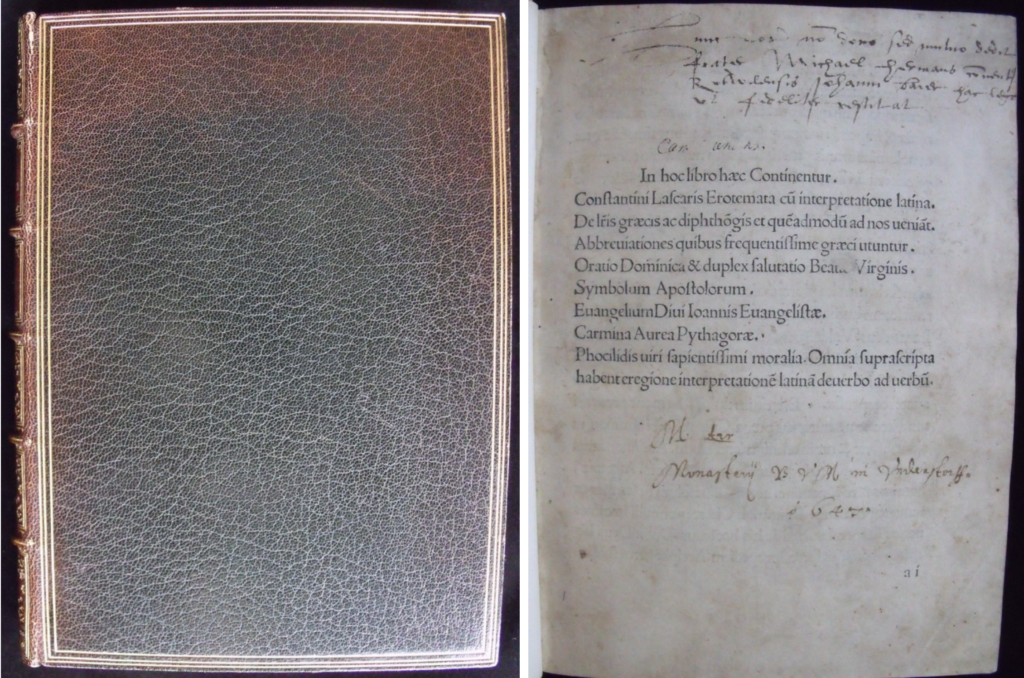 non dono sed mutuo dedit
frater Michael hermans
Johanni
fideliter restituat
In hoc libro hæc Continentur.
Conſtantini Laſcaris Erotemata cū interpretatione latina.
De lr̄is græcis ac diphthōgis et quēadmodū ad nos ueniāt.
Abbreuiationes quibus frequentiſſime græci utuntur.
Oratio Dominica & duplex ſalutatio Beat.. Virginis.
Symbolum Apoſtolorum.
Euangelium Diui Ioannis Euangeliſtæ.
Carmina Aurea Pythagoræ.
Phocilidis uiri ſapientiſſimi moralia. Omnia ſupraſcripta
habent eregione interpretationē latinā deuerbo ad uerbū.
Monasterij B V M in Vnderstorff.
a i